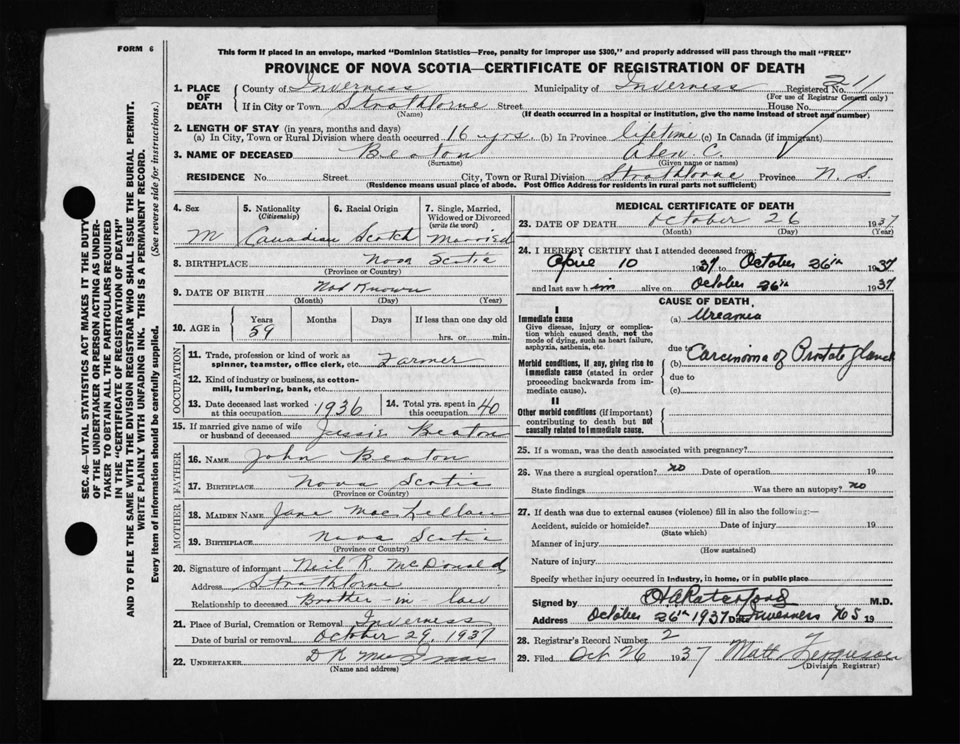 FORM 6
This form if placed in an envelope, marked "Dominion Statistics—Free, penalty for improper use $300," and properly addressed will pass through the mail "FREE"
PROVINCE OF NOVA SCOTIA—CERTIFICATE OF REGISTRATION OF DEATH
1. PLACE OF DEATH County of Inverness Municipality of Inverness Registered No. 211
(For use of Registrar General only)
If in City or Town Strathlorne Street House No.
(Name) (If death occurred in a hospital or institution, give the name instead of street and number)
2. LENGTH OF STAY (in years, months and days)
(a) In City, Town or Rural Division where death occurred 16 yrs. (b) In Province lifetime (c) In Canada (if immigrant)
3. NAME OF DECEASED Beaton Alex. C.
(Surname) (Given name or names)
RESIDENCE No. Street City, Town or Rural Division Strathlorne Province N. S.
(Residence means usual place of abode. Post Office Address for residents in rural parts not sufficient)
4. Sex M
5. Nationality (Citizenship) Canadian
6. Racial Origin Scotch
7. Single, Married, Widowed or Divorced (write the word) Married
8. BIRTHPLACE Nova Scotia
(Province or Country)
9. DATE OF BIRTH Not Known
(Month) (Day) (Year)
10. AGE in Years 59 Months Days If less than one day old hrs. or min.
OCCUPATION
11. Trade, profession or kind of work as spinner, teamster, office clerk, etc. Farmer
12. Kind of industry or business, as cotton-mill, lumbering, bank, etc.
13. Date deceased last worked at this occupation 1936
14. Total yrs. spent in this occupation 40
15. If married give name of wife or husband of deceased Jessie Beaton
FATHER
16. NAME John Beaton
17. BIRTHPLACE Nova Scotia
(Province or Country)
MOTHER
18. MAIDEN NAME Jane MacLellan
19. BIRTHPLACE Nova Scotia
(Province or Country)
20. Signature of informant Neil R McDonald
Address Strathlorne
Relationship to deceased Brother-in-law
21. Place of Burial, Cremation or Removal Inverness
Date of burial or removal October 29, 1937
22. UNDERTAKER D R MacIsaac
(Name and address)
MEDICAL CERTIFICATE OF DEATH
23. DATE OF DEATH October 26 1937
(Month) (Day) (Year)
24. I HEREBY CERTIFY that I attended deceased from:
April 10 1937 to October 26th 1937
and last saw him alive on October 26th 1937
CAUSE OF DEATH
I
Immediate cause (a) Ureamia
Give disease, injury or complication which caused death, not the mode of dying, such as heart failure, asphyxia, asthenia, etc.
due to
Morbid conditions, if any, giving rise to immediate cause (stated in order proceeding backwards from immediate cause).
(b) Carcinoma of Prostate gland
due to
(c)
II
Other morbid conditions (if important) contributing to death but not causally related to immediate cause.
25. If a woman, was the death associated with pregnancy?
26. Was there a surgical operation? no Date of operation 19
State findings Was there an autopsy? no
27. If death was due to external causes (violence) fill in also the following:—
Accident, suicide or homicide? Date of injury 19
(State which)
Manner of injury
(How sustained)
Nature of injury
Specify whether injury occurred in industry, in home, or in public place
Signed by M.D.
Address October 26th 1937 Date Inverness NS 19
28. Registrar's Record Number 2
29. Filed Oct 26 1937 Matt Ferguson
(Division Registrar)
SEC. 46—VITAL STATISTICS ACT MAKES IT THE DUTY
OF THE UNDERTAKER OR PERSON ACTING AS UNDER-
TAKER TO OBTAIN ALL THE PARTICULARS REQUIRED
IN THE "CERTIFICATE OF REGISTRATION OF DEATH"
AND TO FILE THE SAME WITH THE DIVISION REGISTRAR WHO SHALL ISSUE THE BURIAL PERMIT.
WRITE PLAINLY WITH UNFADING INK. THIS IS A PERMANENT RECORD.
Every item of Information should be carefully supplied. (See reverse side for instructions.)